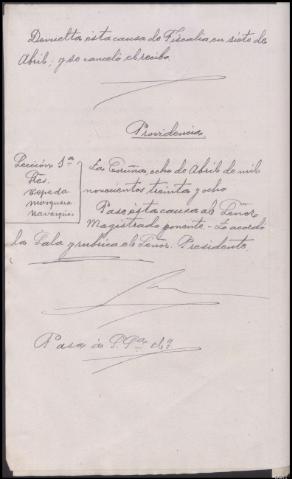 Devuelta esta causa de Fiscalia, en siete de
Abril; y se canceló el recibo.
Providencia
Sección 1ª
Sres.
Cepeda
Mosquera
Navarque
La Coruña, ocho de Abril de mil
novecientos treinta y ocho
Pase esta causa al Señor
Magistrado ponente - Lo acordó
la Sala y rubrica el Señor Presidente
Pasa